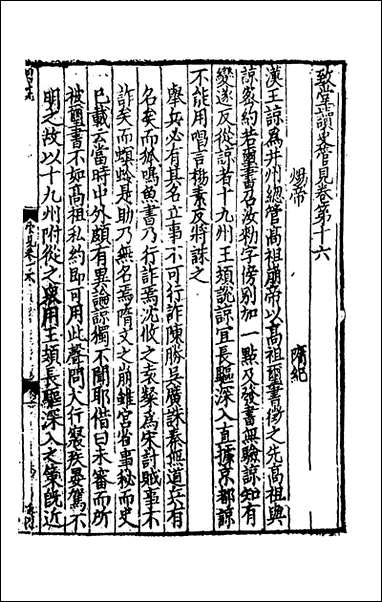 致堂讀史管見卷第十六
煬帝 隋紀
漢王諒為并州總管高祖崩帝以高祖璽書徵之先高祖與
諒密約若璽書召汝勑字傍別加一點及發書無驗諒知有
變遂反從諒者十九州王頍說諒宜長驅深入直據京都諒
不能用唱言楊素反將誅之
舉兵必有其名立事不可行詐陳勝吳廣誅秦無道兵有
名矣而狐鳴魚書乃行詐焉沈攸之袁粲為宋討賊事不
詐矣而蜈蚣是助乃無名焉隋文之崩雖宮省事秘而史
已載之當時中外頗有異論諒獨不聞耶借曰未審而所
被璽書不如高祖私約即可用此聲問大行發疾晏駕不
明之故以十九州附從之衆用王頍長驅深入之策旣近